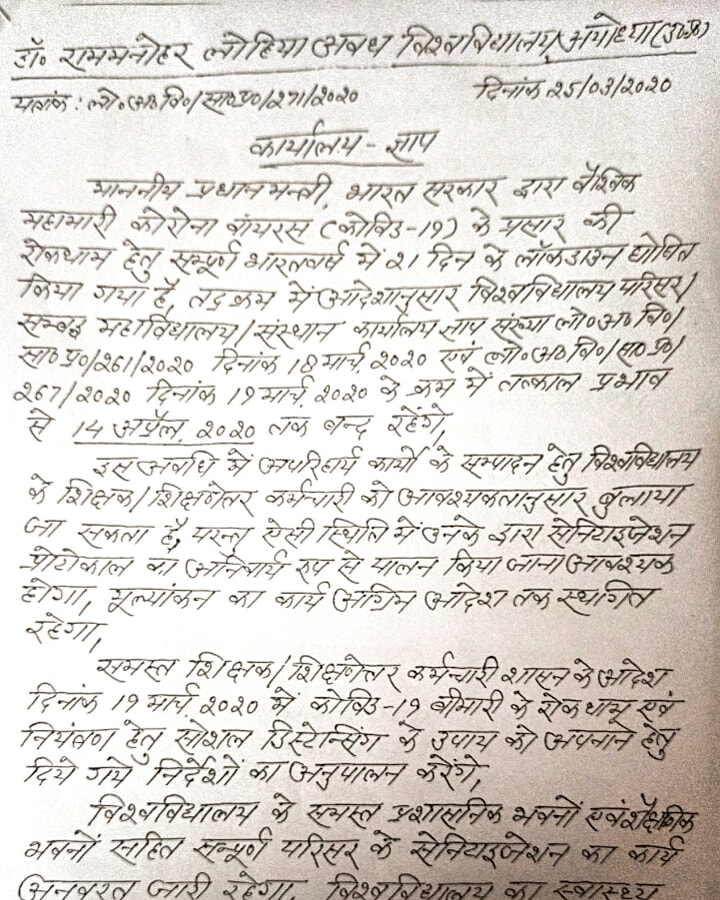 डॉ० राममनोहर लोहिया अवध विश्वविद्यालय, अयोध्या (उ०प्र०)
पत्रांक : लो०अ०वि०/सा०प्र०/271/2020 दिनांक 25/03/2020
कार्यालय - ज्ञाप
माननीय प्रधानमन्त्री, भारत सरकार द्वारा वैश्विक
महामारी कोरोना वायरस (कोविड-19) के प्रसार की
रोकथाम हेतु सम्पूर्ण भारतवर्ष में 21 दिन के लॉकडाउन घोषित
किया गया है, तद्क्रम में आदेशानुसार विश्वविद्यालय परिसर/
सम्बद्ध महाविद्यालय/संस्थान कार्यालय ज्ञाप संख्या लो०अ०वि०/
सा०प्र०/261/2020 दिनांक 18 मार्च, 2020 एवं लो०अ०वि०/सा०प्र०/
267/2020 दिनांक 19 मार्च, 2020 के क्रम में तत्काल प्रभाव
से 14 अप्रैल, 2020 तक बन्द रहेंगे,
इस अवधि में अपरिहार्य कार्यो के सम्पादन हेतु विश्वविद्यालय
के शिक्षक/शिक्षणेत्तर कर्मचारी को आवश्यकतानुसार बुलाया
जा सकता है, परन्तु ऐसी स्थिति में उनके द्वारा सेनिटाइजेशन
प्रोटोकाल का अनिवार्य रूप से पालन किया जाना आवश्यक
होगा, मूल्यांकन का कार्य अग्रिम आदेश तक स्थगित
रहेगा,
समस्त शिक्षक/शिक्षणेत्तर कर्मचारी शासन के आदेश
दिनांक 19 मार्च 2020 में कोविड-19 बीमारी के रोकथाम एवं
नियंत्रण हेतु सोशल डिस्टेन्सिंग के उपाय को अपनाने हेतु
दिये गये निर्देशों का अनुपालन करेंगे,
विश्वविद्यालय के समस्त प्रशासनिक भवनों एवं शैक्षणिक
भवनों सहित सम्पूर्ण परिसर के सेनिटाइजेशन का कार्य
अनवरत जारी रहेगा, विश्वविद्यालय का स्वास्थ्य